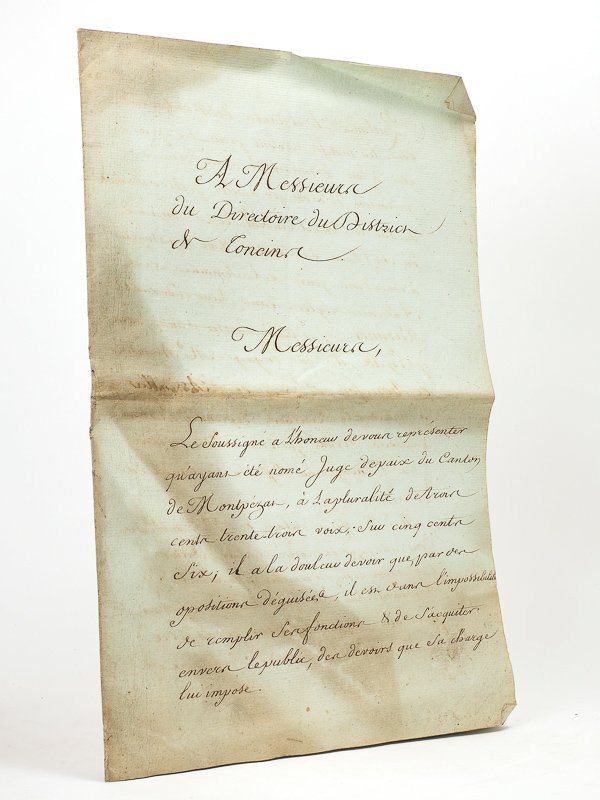 A Messieurs
du Directoire du District
de Toneins.
Messieurs,
Le soussigné a l'honeur de vous representer
qu'ayant été nomé Juge de paix du Canton
de Montpézat, à la pluralité de trois
cents trente trois voix, sur cinq cents
six; il a la douleur de voir que, par des
opositions déguisées, il est dans l'impossibilité
de remplir ses fonctions & de s'acquiter
envers le public, des devoirs que sa charge
lui impose.